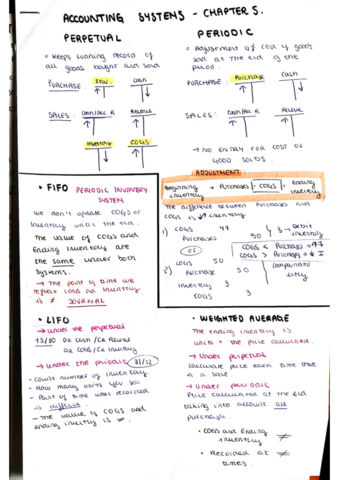 ACCOUNTING SYSTEMS - CHAPTER 5.
PERPETUAL
• Keeps running record of
all goods bought and sold
PURCHASE:
Inv.
Cash
SALES:
Cash/Acc. R
Revenue
Inventory
COGS
PERIODIC
• Adjustment of cost of goods
sold at the end of the
period.
PURCHASE:
Purchase
Cash
SALES:
Cash/Acc R
Revenue
→ NO ENTRY FOR COST OF
GOOD SOLDS.
ADJUSTMENT:
Beginning inventory + Purchases - COGS = Ending inventory
The difference between Purchases and
COGS is ↓↑ inventory
1) COGS 47
Purchases 50
3 → Debit
inventory
OR
COGS < Purchase → ↑ I
COGS > Purchase → ↓ I
2) COGS 50
Purchase 50
Inventory 3
COGS 3
compounded
entry
• FIFO PERIODIC INVENTORY
SYSTEM
We don't update COGS or
inventory until the end.
The value of COGS and
Ending inventory are
the same under both
systems.
→ The point of time we
reflect COGS or inventory
is ≠. JOURNAL
• LIFO
→ under the perpetual
13/10 DR Cash /CR Revenue
DR COGS/CR Inventory
→ under the periodic 31/12
- Count number of inventory
- How many units you sell
- Point of time when recorded
is different
- The value of COGS and
ending inventory is ≠.
• WEIGHTED AVERAGE
The ending inventory is
units × the price calculated.
→ Under perpetual
calculate price each time that
is a sale.
→ Under periodic
Price calculated at the end
taking into account all
purchases.
• COGS and Ending
inventory ≠
• Recorded at
times. ≠